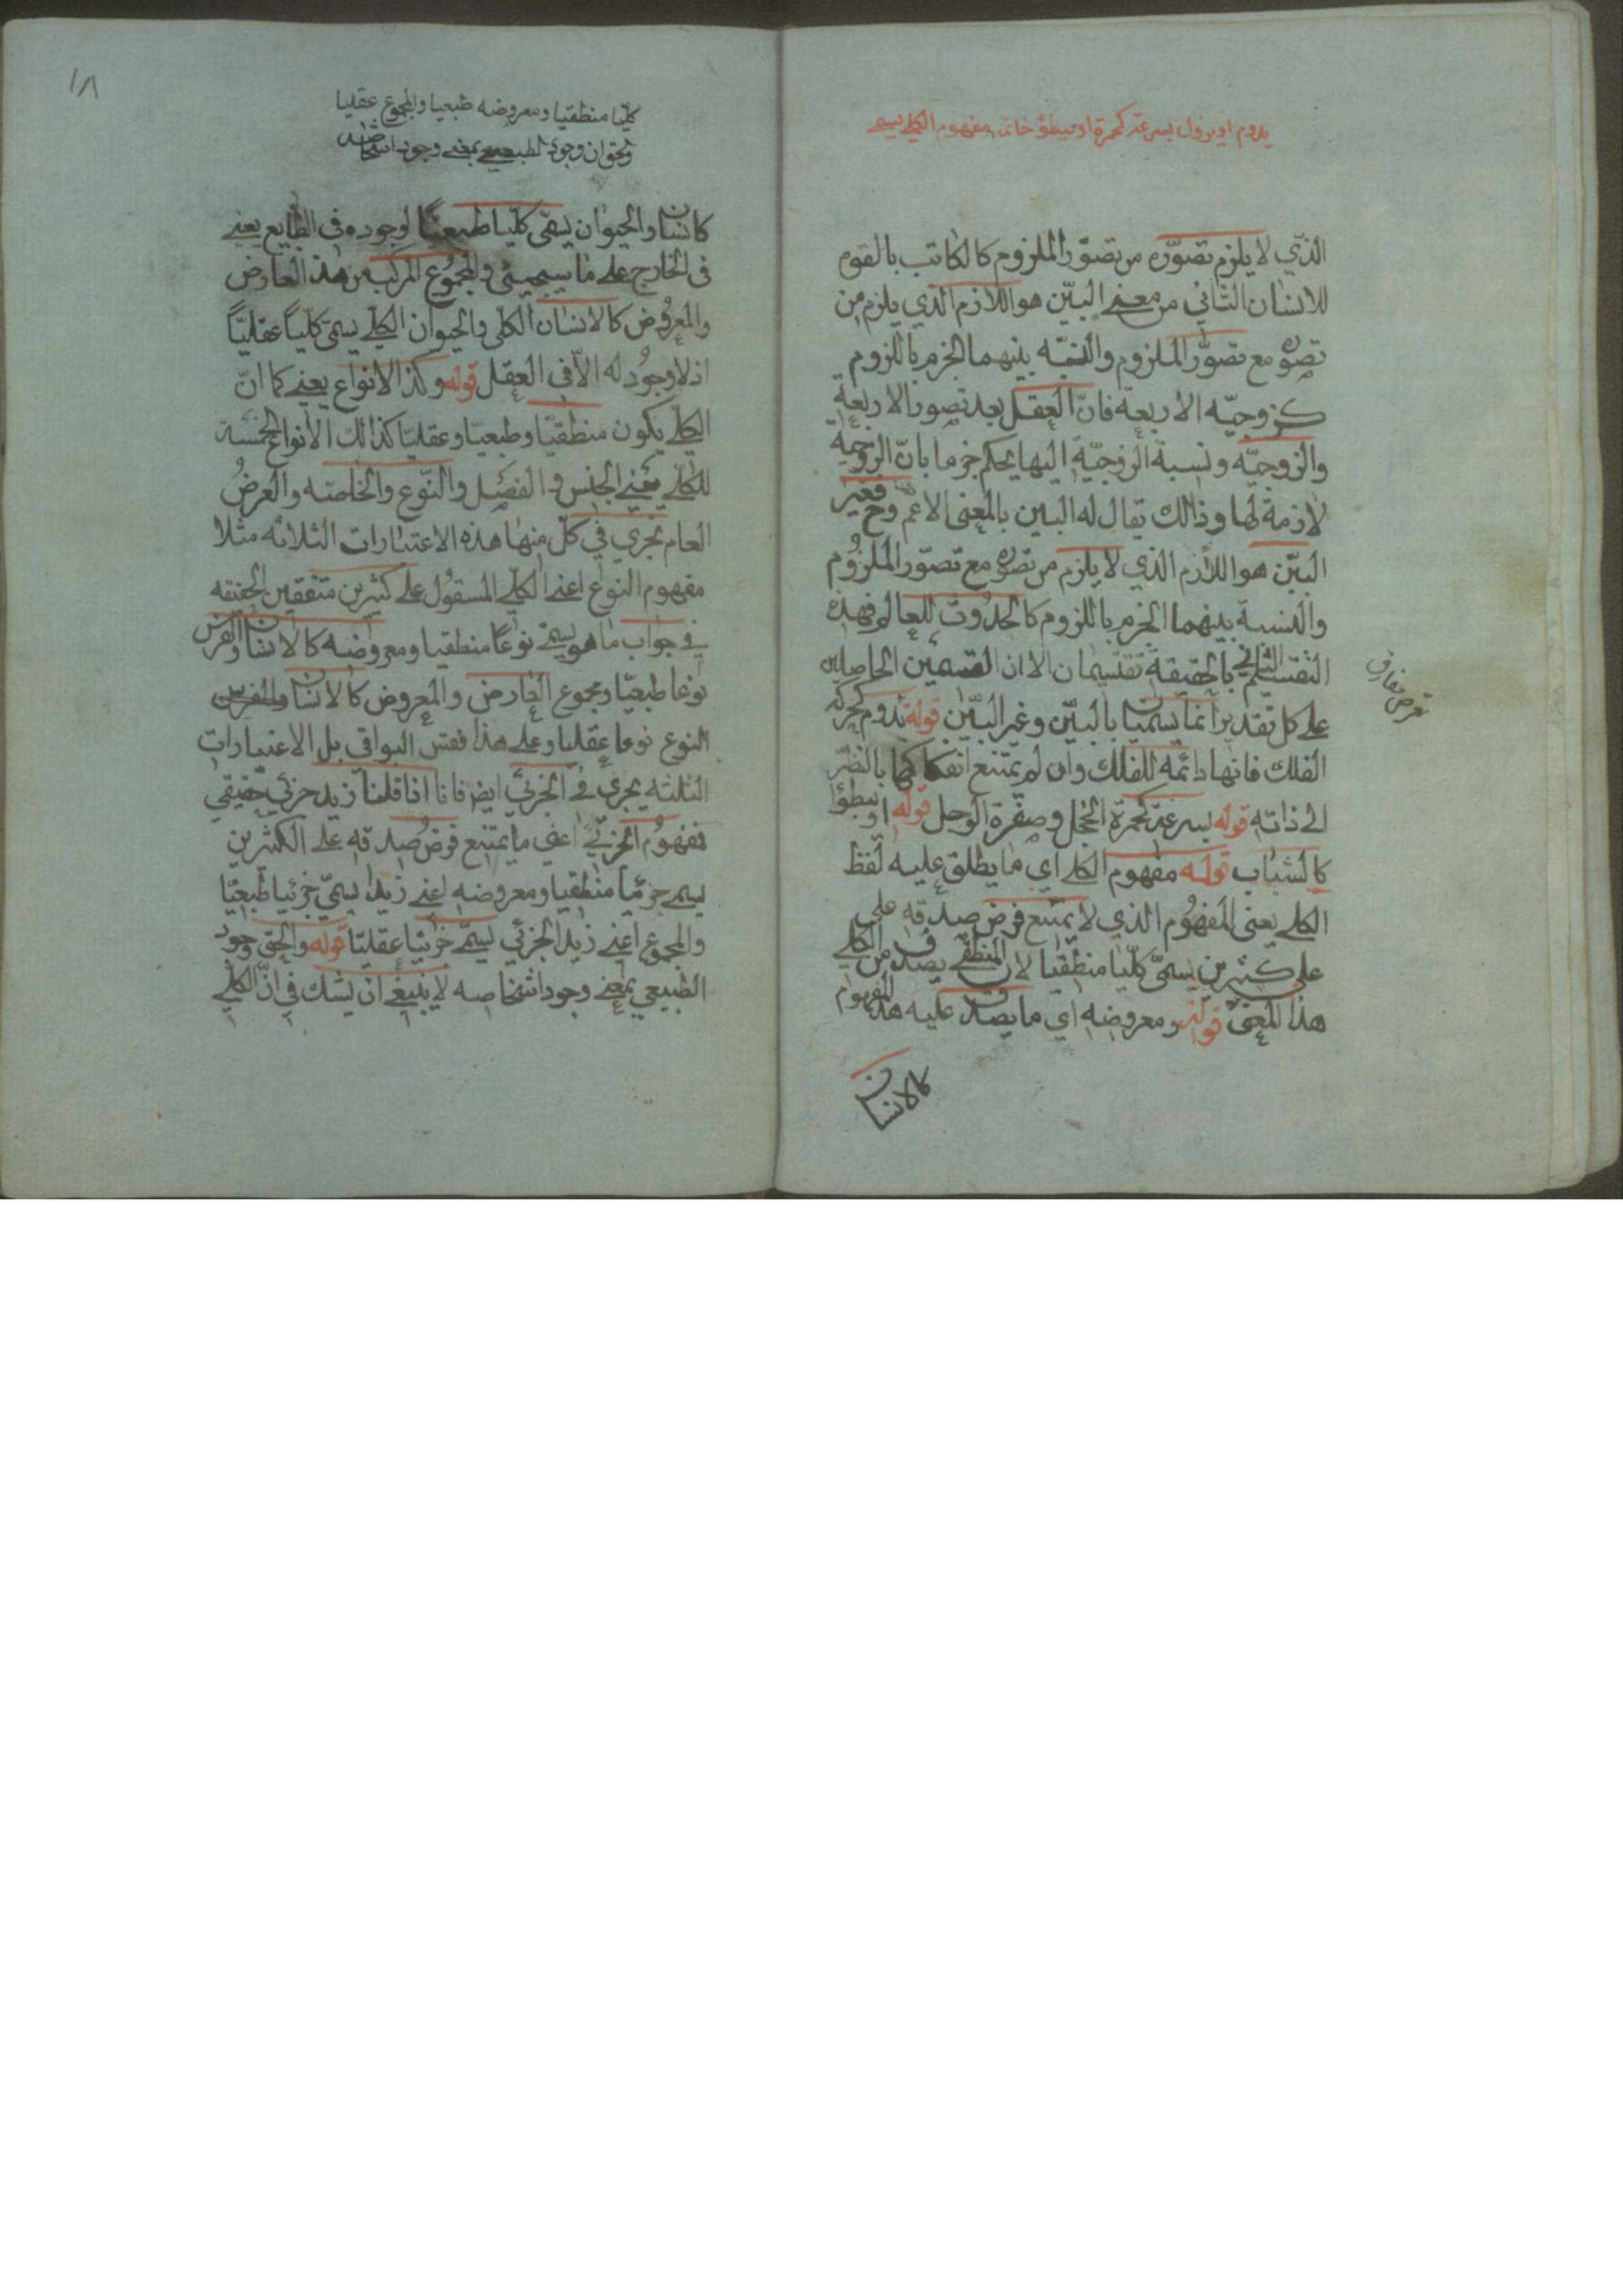 يدوم او يزول بسرعة كحمرة او ببطؤ خاتمه مفهوم الكلي يسمى
الذي لا يلزم تصوره من تصور الملزوم كالكاتب بالقوه
للانسان الثاني من معنى البين هو اللازم الذي يلزم من
تصوره مع تصور الملزوم والنسبة بينهما الجزم باللزوم
كزوجيه الاربعه فان العقل بعد تصور الاربعة
والزوجيه ونسبة الزوجية اليها يحكم جزما بان الزوجية
لازمة لها وذالك يقال له البين بالمعنى الاعم وح فغير
البين هو اللازم الذي لا يلزم من تصوره مع تصور الملزوم
والنسبة بينهما الجزم باللزوم كالحدوث للعالم فهذه
التقسيم الثاني بالحقيقة تقسيمان الا ان القسمين الحاصلين
على كل تقدير انما يسميان بالبين وغير البين قوله يدوم كحركة
الفلك فانها دائمه للفلك وان لم يمتنع انفكاكها بالنظر
الى ذاته قوله بسرعة كحمرة الخجل وصفرة الوجل قوله او ببطؤ
كالشباب قوله مفهوم الكلي اي ما يطلق عليه لفظ
الكلي يعنى المفهوم الذي لا يمتنع فرض صدقه على
على كثيرين يسمى كليا منطقيا لان المنطقي يصدق من الكلي
هذا المعنى قوله ومعروضه اي ما يصدق عليه هذا المفهوم
كالانسان
عرض مفارق
١٨
كليا منطقيا ومعروضه طبعيا والمجموع عقليا
والحق ان وجود الطبيعي بمعنى وجود اشخاصه
كانسان والحيوان يسمى كليا طبعيا لوجوده في الطبايع يعنى
فى الخارج على ما سيجيئ والمجموع المركب من هذا العارض
والمعروض كالانسان الكلى والحيوان الكلي يسمى كليا عقليا
اذ لا وجود له الا في العقل قوله وكذا الانواع يعنى كما ان
الكلي يكون منطقيا وطبعيا وعقليا كذالك الانواع الخمسة
للكلي يعنى الجنس والفصل والنوع والخاصه والعرض
العام تجري في كل منها هذه الاعتبارات الثلاثه مثلا
مفهوم النوع اعنى الكلي المسقول على كثيرين متفقين الحقيقه
في جواب ما هو يسمى نوعا منطقيا ومعروضه كالانسان والفرس
نوعا طبعيا ومجموع العارض والمعروض كالانسان والفرس
النوع نوعا عقليا وعلى هذا فقس البواقى بل الاعتبارات
الثلثه يجرى فى الجزئي ايضا فانا اذا قلنا زيد جزئي حقيقي
فمفهوم الجزئي اعنى ما يمتنع فرض صدقه على الكثيرين
يسمى جزئيا منطقيا ومعروضه اعنى زيدا يسمى جزئيا طبعيا
والمجموع اعنى زيد الجزئي يسمى جزئيا عقليا قوله والحق وجود
الطبيعي بمعنى وجود اشخاصه لا ينبغي ان يشك في ان الكلي